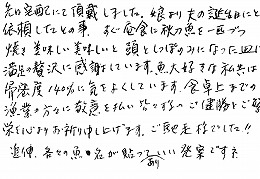 先日宅配にて頂戴しました。娘より夫の誕生日にと
依頼したとの事、すぐ昼食に秋刀魚を一匹づつ
焼き美味しい美味しいと頭としっぽのみになった皿に
満足の贅沢に感謝しています。魚大好きな私共は
帰港度140%に気をよくしています。食卓上までの
漁業の方々に敬意を払い皆々様のご健勝とご繁
栄を心よりお祈り申し上げます。ご馳走様でした!!
追伸、各々の魚・名が貼っていい発案ですネ
あり